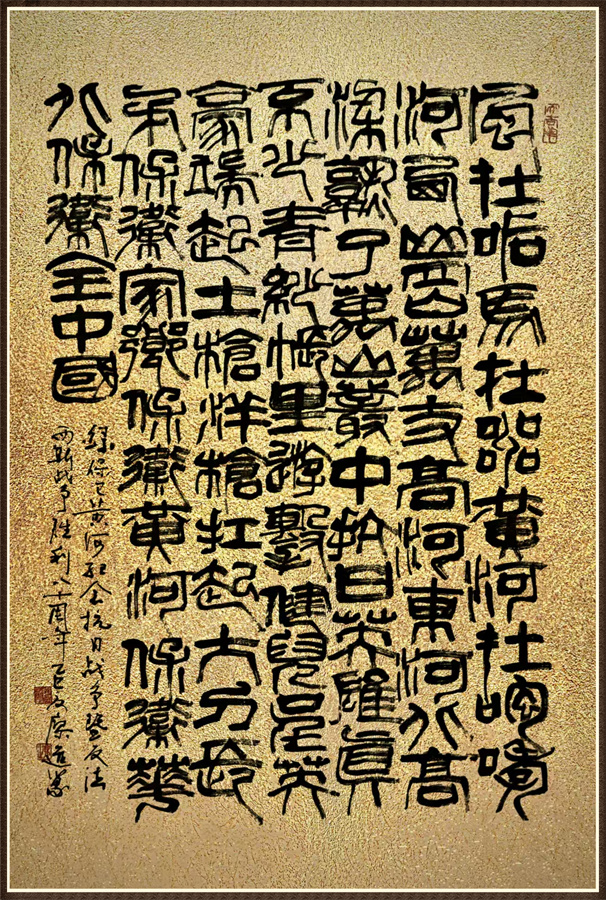 風在吼馬在嘂黃河在咆哮
河西山岡萬丈高河東河北高
粱熟了萬山叢中抗日英雄真
不少青紗帳里遊擊健兒呈英
豪端起土槍洋槍扛起大刀長
矛保衛家鄉保衛黃河保衛華
北保衛全中國
錄保卫黄河纪念抗日战争暨反法
西斯战争胜利八十周年乙巳